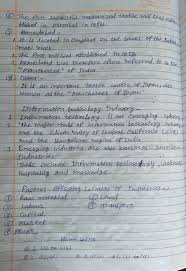 ① The first successful mechanized textile mill was estab-
lished in Mumbai in 1854.
② Ahmedabad :-
1 It is located in Gujarat on the banks of the Sabar-
mati river.
2 The first mill was established in 1859.
3 Ahmedabad was therefore often referred to as the
"Manchester" of India
③ Osaka :-
It is an important textile centre of Japan, also
known as the "Manchester" of Japan.
Information technology Industry
1 Information technology is an emerging industry
2 The major hubs of information technology industry
are the Silicon valley of Central California (USA)
and the Bangalore region of India
3 Emerging industries are also known as Sunrise
Industries
4 These include Information technology, wellness
Hospitality and Knowledge.
Factors Affecting Location of Industries
① Raw material ② Land
③ Labour ④ Transport
⑤ Capital
⑥ Market
⑦ Power
Home work